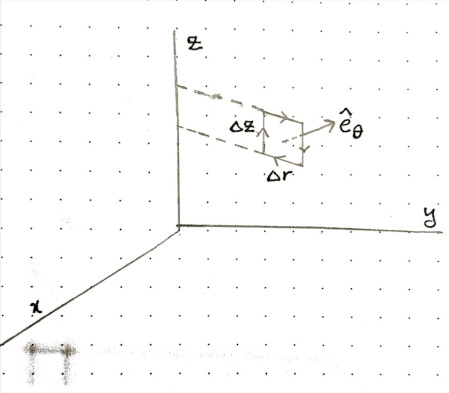 z
Δz
ê_θ
Δr
y
x